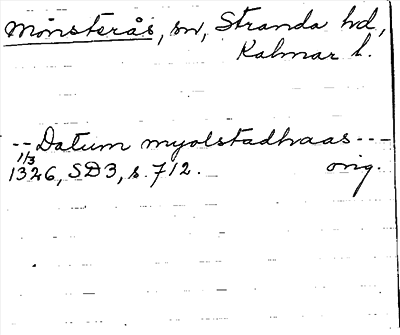 Mönsterås, sn, Stranda hd,
Kalmar l.
-- Datum myolstadhraas ---
1/3
1326, SD3, s. 712. orig.